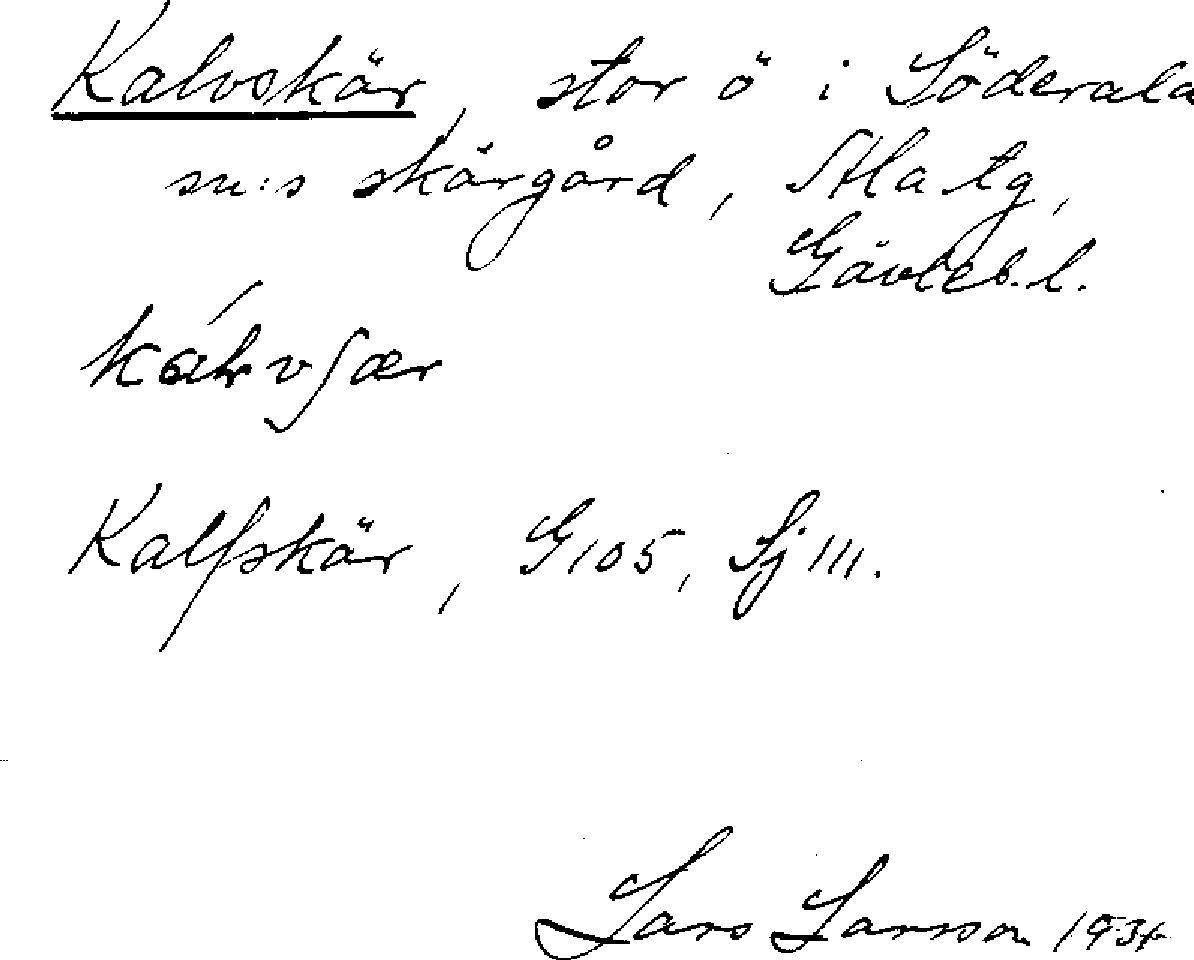 Kalvskär, stor ö i Söderala
sn:s skärgård, Ala tg,
Gävleb. l.
Kalfskär, G105, Sj 111.
Lars Larsson 1934